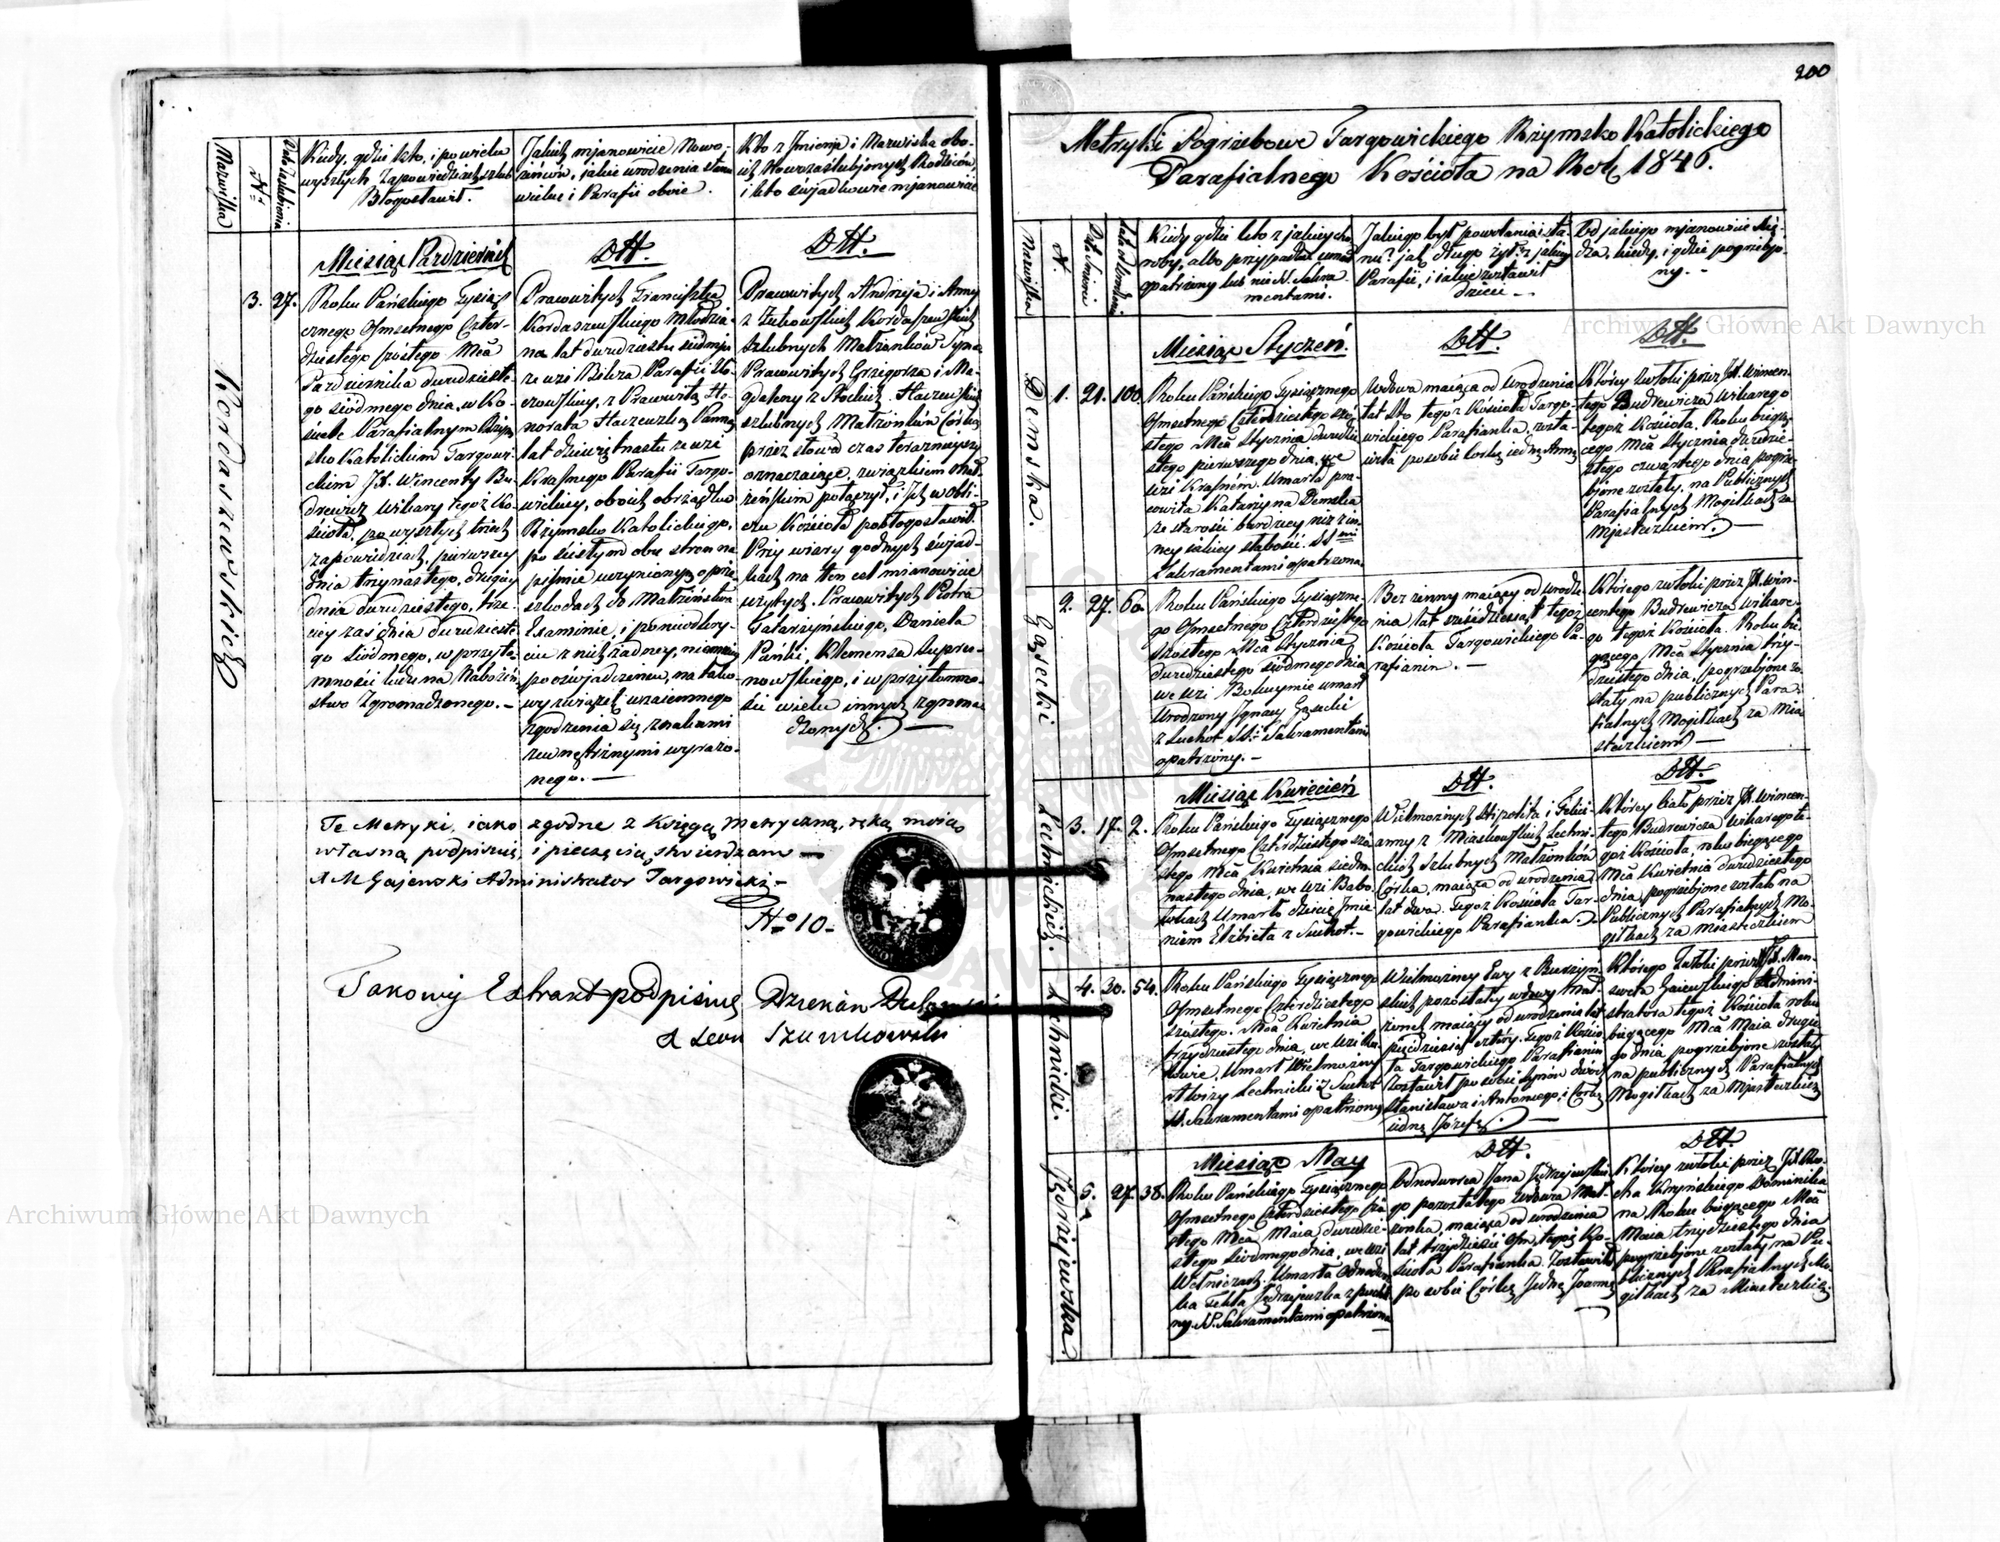 Nazwiska
N.
Data Zaślubienia
Kiedy, gdzie kto, i po wielu
wyszłych Zapowiedziach szlub
Błogosławił.
Jakich mianowicie Nowo-
żeńców, jakie urodzenia stanu
wieku i Parafii oboie.
Kto z Jmienia i Nazwiska obo-
ich Nowozaślubionych Rodziców,
i kto świadkowie mianowicie
Kordaszewskich
3. 27.
Miesiąc Pazdziernik
Roku Pańskiego Tysią-
cznego Osmsetnego Czter-
dziestego szóstego Mca
Pazdziernika dwudzieste-
go siódmego dnia, w Ko-
ściele Parafialnym Rzym-
sko Katolickim Targowi-
ckim JX. Wincenty Bu-
drewicz Wikary tegoż Ko-
ścioła, po wyszłych trzech
zapowiedziach, pierwszey
dnia trzynastego, drugiey
dnia dwudziestego, trze-
ciey zaś dnia dwudzieste-
go siódmego, w przyto-
mności ludu na Nabożeń-
stwo Zgromadzonego. —
Dtt.
Pracowitych Franciszka
Kordaszewskiego Młodzia-
na lat dwudziestu siedmiu
ze wsi Parafii
z Pracowitą Ho-
noratą Haczewską Panną
lat dziewiętnastu ze wsi
Krasnego Parafii Targo-
wickiey, oboich obrządku
Rzymsko Katolickiego,
po ścisłym obu stron na
piśmie uczynionym o prze-
szkodach do Małżeństwa
Examinie, i
z nich żadney,
po oświadczeniu, na tako-
wy związek wzaiemnego
zgodzenia się znakami
zewnętrznymi wyrażo-
nego. —
Dtt.
Pracowitych Andrzeja i Anny
z Żukowskich Kordaszewskich
szlubnych Małżonków Syna
Pracowitych Grzegorza i Ma-
gdaleny z Haczewskich
szlubnych Małżonków Córkę
przez słowa czas teraznieyszy
oznaczaiące, związkiem Mał-
żeńskim połączył, i Jch w obli-
czu Kościoła pobłogosławił.
Przy wiary godnych świad-
kach na ten cel mianowicie
użytych, Pracowitych Piotra
Daniela
Klemensa
i w przytomno-
ści wielu innych zgroma-
dzonych. —
Te Metryki, iako zgodne z Księgą Metryczną, ręką moią
własną podpisuię, i pieczęcią stwierdzam —
X M Gajewski Administrator Targowicki —
No 10.
Takowy Extrakt podpisuię Dziekan
X Leon Szumkowski
200
Metryki Pogrzebowe Targowickiego Rzymsko Katolickiego
Parafialnego Kościoła na Rok 1846.
Nazwiska
N.
Data Śmierci
Lata od Urodzenia
Kiedy gdzie kto z jakiey cho-
roby, albo przypadku umarł
opatrzony lub nie Ś. Sakra-
mentami.
Jakiego był powołania i sta-
nu? jak długo żył? z jakiey
Parafii, i iakie zostawił
dzieci. —
Od jakiego mianowicie Xię-
dza, kiedy, i gdzie pogrzebio-
ny. —
Demska.
1. 21. 100.
Miesiąc Styczeń.
Roku Pańskiego Tysiącznego
Osmsetnego Czterdziestego szó-
stego Mca Stycznia dwudzie-
stego pierwszego dnia, we
wsi Krasném. Umarła pra-
cowita Katarzyna Demska
ze starości bardziey niż z in-
ney iakiey słabości. ŚŚ mi
Sakramentami opatrzona
Dtt.
Wdowa maiąca od Urodzenia
lat Sto tegoż Kościoła Targo-
wickiego Parafianka, zosta-
wiła po sobie Córkę iednę Annę
Dtt.
Którey zwłoki przez JX. Wincen-
tego Budrewicza Wikarego
tegoż Kościoła, Roku bieżą-
cego Mca Stycznia dwudzie-
stego czwartego dnia pogrze-
bione zostały, na Publicznych
Parafialnych Mogiłkach za
Miasteczkiem. —
Gąsecki
2. 27. 60.
Roku Pańskiego Tysiączne-
go Osmsetnego Czterdziestego
szóstego Mca Stycznia
dwudziestego siódmego dnia
we wsi Bohuymie umarł
Urodzony Jgnacy Gąsecki
z Suchot ŚŚ. Sakramentami
opatrzony. —
Bezżenny maiący od urodze-
nia lat sześćdziesiąt tegoż
Kościoła Targowickiego Pa-
rafianin. —
Którego zwłoki przez JX. Win-
centego Budrewicza Wikare-
go tegoż Kościoła. Roku bie-
gącego Mca Stycznia trzy-
dziestego dnia, pogrzebione zo-
stały na publicznych Para-
fialnych Mogiłkach za Mia-
steczkiem —
Lechnickich.
3. 17. 2.
Miesiąc Kwiecień
Roku Pańskiego Tysiącznego
Osmsetnego Czterdziestego szó-
stego Mca Kwietnia siedm-
nastego dnia, we wsi Babo-
łokach Umarło dziecię Jmie-
niem Elżbieta z Suchot. —
Dtt.
Wielmożnych Hipolita i Felici-
anny z Miaskowskich Lechni-
ckich Szlubnych Małżonków
Córka, maiąca od urodzenia
lat dwa. Tegoż Kościoła Tar-
gowickiego Parafianka. —
Dtt.
Którey ciało przez JX. Wincen-
tego Budrewicza Wikarego te-
goż Kościoła, roku biegącego
Mca Kwietnia dwudziestego
dnia, pogrzebione zostało na
Publicznych Parafialnych Mo-
giłkach za Miasteczkiem
Lechnicki.
4. 30. 54.
Roku Pańskiego Tysiącznego
Osmsetnego Czterdziestego
szóstego. Mca Kwietnia
trzydziestego dnia, we wsi
Umarł Wielmożny
Aloizy Lechnicki z Suchot
ŚŚ. Sakramentami opatrzony
Wielmożney Ewy z
skich pozostałey wdowy Mał-
żonek maiący od urodzenia lat
pięćdziesiąt cztéry. Tegoż Kościo-
ła Targowickiego Parafianin
Zostawił po sobie Synów dwóch
Stanisława i Antoniego, i Córkę
iednę Józefę. —
Którego Zwłoki przez JX. Man-
sweta Gaiewskiego Admini-
stratora tegoż Kościoła roku
biegącego Mca Maia drugie-
go dnia, pogrzebione zostały
na publicznych Parafialnych
Mogiłkach za Miasteczkiem
Jędrzejewska.
5. 27. 38.
Miesiąc May
Roku Pańskiego Tysiącznego
Osmsetnego Czterdziestego szó-
stego Mca Maia dwudzie-
stego siódmego dnia, we wsi
Wołniczach. Umarła Odnodwor-
ka Tekla Jędrzejewska
Ś. Sakramentami opatrzona
Dtt.
Odnodworca Jana Jędrzejewskie-
go pozostałego wdowca Mał-
żonka, maiąca od urodzenia
lat trzydzieści osm, tegoż Ko-
ścioła Parafianka. Zostawiła
po sobie Córkę Jednę Joannę
Dtt.
Którey zwłoki przez JX.
Dominika-
na Roku biegącego Mca
Maia trzydziestego dnia
pogrzebione zostały na Pu-
blicznych Parafialnych Mo-
giłkach za Miasteczkiem
Archiwum Główne Akt Dawnych
Archiwum Główne Akt Dawnych